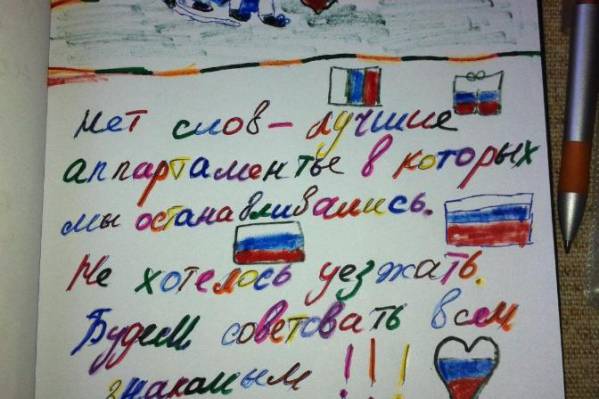 Нет слов - лучшие
аппартаменты в которых
мы останавливались.
Не хотелось уезжать.
Будем советовать всем
знакомым !!!